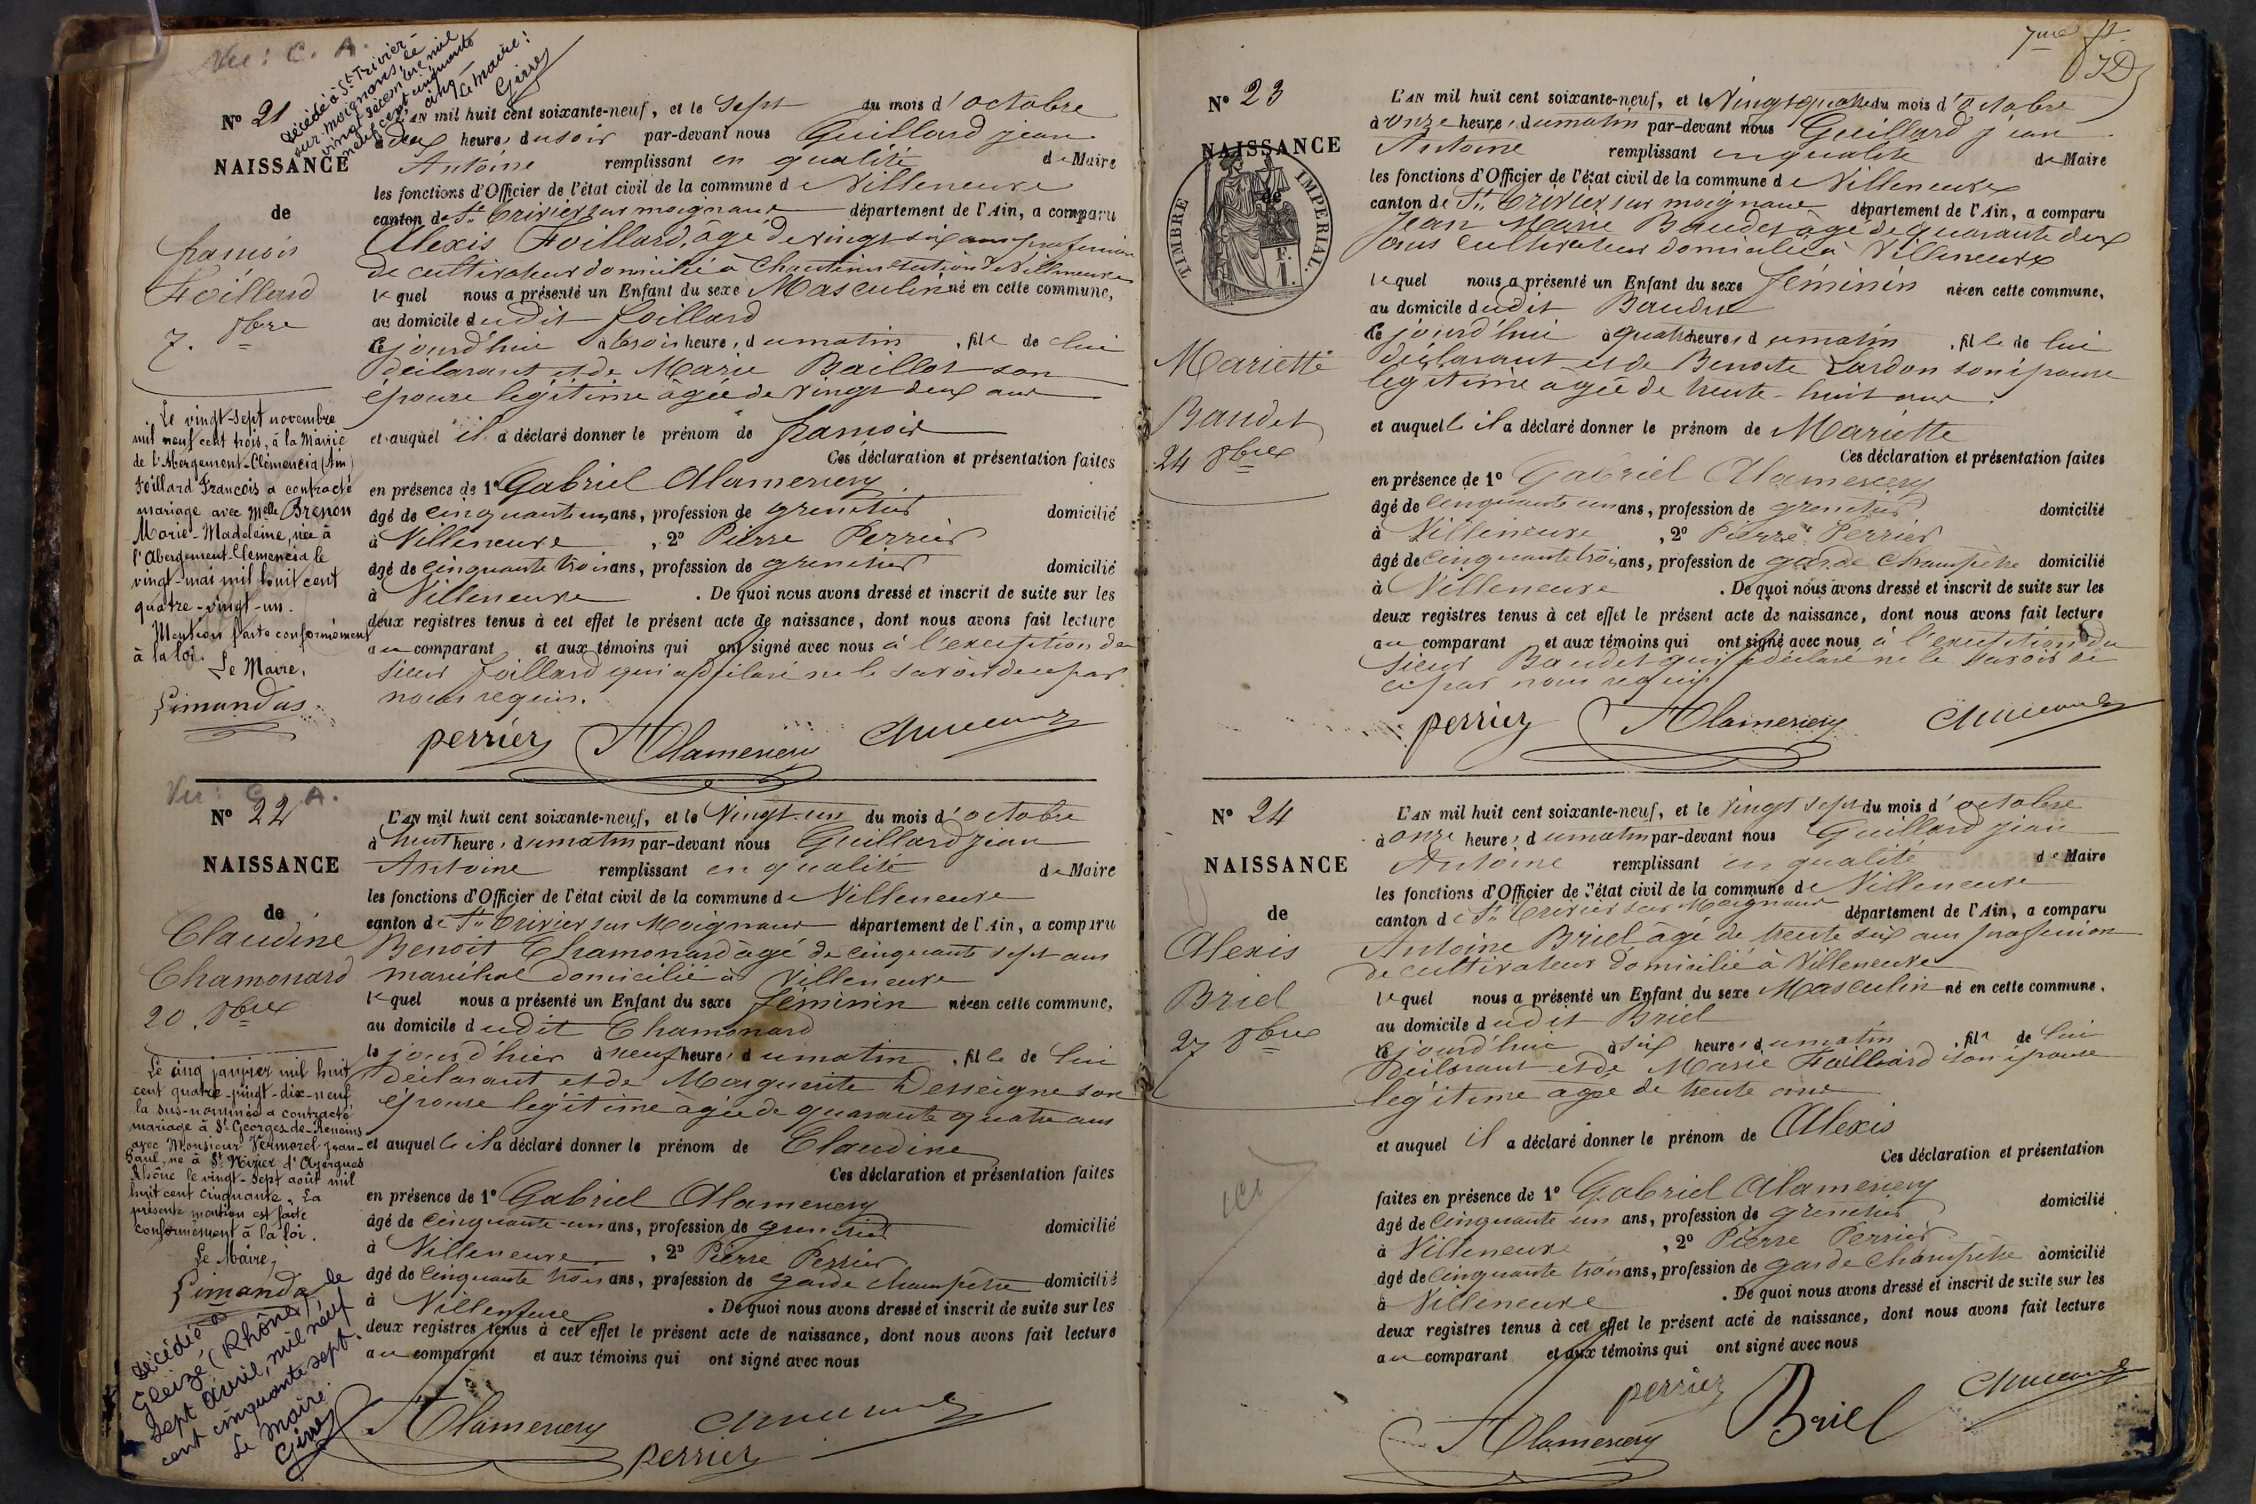 Vu : C. A.
Décédé à St Trivier-
sur-moignans, le
vingt décembre mil
neuf cent cinquante
cinq
Le maire :
N° 21
NAISSANCE
de
francois
Foillard
7. 8bre
Le vingt-sept novembre
mil neuf cent trois, à la Mairie
de l'Abergement-Clémencia (Ain)
Foillard Francois a contracté
mariage avec Melle Brenon
Marie-Madeleine, née à
l'Abergement-Clemencia le
vingt-mai mil huit cent
quatre-vingt-un.
Mention faite conformément
à la loi.
Le Maire,
Limandas
L'AN mil huit cent soixante-neuf, et le Sept du mois d'octobre
à deux heures du soir par-devant nous Guillard jean
Antoine remplissant en qualité de Maire
les fonctions d'Officier de l'état civil de la commune de Villeneuve
canton de St Trivier sur moignans département de l'Ain, a comparu
Alexis Foillard, âgé de vingt six ans profession
de cultivateur domicilié à section de Villeneuve
lequel nous a présenté un Enfant du sexe Masculin né en cette commune,
au domicile dudit foillard
ce jourd'hui à trois heures du matin, fils de lui
déclarant et de Marie Baillot son
épouse légitime âgée de vingt deux ans
et auquel il a déclaré donner le prénom de francois
Ces déclaration et présentation faites
en présence de 1° Gabriel Alamercery
âgé de cinquante un ans, profession de grenetier domicilié
à Villeneuve, 2° Pierre Perrier
âgé de cinquante trois ans, profession de grenetier domicilié
à Villeneuve. De quoi nous avons dressé et inscrit de suite sur les
deux registres tenus à cet effet le présent acte de naissance, dont nous avons fait lecture
au comparant et aux témoins qui ont signé avec nous à l'exception du
sieur foillard qui a déclaré ne le savoir de ce par
nous requis.
perrier Alamercery
Vu : C. A.
N° 22
NAISSANCE
de
Claudine
Chamonard
20. 8bre
Le cinq janvier mil huit
cent quatre-vingt-dix-neuf
la sus-nommée a contracté
mariage à St Georges-de-Reneins
avec Monsieur Vermorel Jean-
Paul, né à St Nizier d'Azergues
Rhône le vingt-sept août mil
huit cent cinquante. La
présente mention est faite
conformément à la loi.
Le Maire,
Limandas
Décédée à
Gleizé (Rhône) le
sept avril, mil neuf
cent cinquante sept.
Le Maire.
L'AN mil huit cent soixante-neuf, et le Vingt-un du mois d'octobre
à huit heures du matin par-devant nous Guillard jean
Antoine remplissant en qualité de Maire
les fonctions d'Officier de l'état civil de la commune de Villeneuve
canton de St Trivier sur Moignans département de l'Ain, a comparu
Benoit Chamonard âgé de cinquante sept ans
maréchal domicilié à Villeneuve
lequel nous a présenté un Enfant du sexe féminin née en cette commune,
au domicile dudit Chamonard
le jour d'hier à neuf heures du matin, fille de lui
déclarant et de Marguerite Desseigne son
épouse legitime âgée de quarante quatre ans
et auquelle il a déclaré donner le prénom de Claudine
Ces déclaration et présentation faites
en présence de 1° Gabriel Alamercery
âgé de cinquante-un ans, profession de grenetier domicilié
à Villeneuve, 2° Pierre Perrier
âgé de cinquante trois ans, profession de garde champêtre domicilié
à Villeneuve. De quoi nous avons dressé et inscrit de suite sur les
deux registres tenus à cet effet le présent acte de naissance, dont nous avons fait lecture
au comparant et aux témoins qui ont signé avec nous
Alamercery
perrier
7me
N° 23
NAISSANCE
de
TIMBRE IMPERIAL.
Mariette
Baudet
24 8bre
L'AN mil huit cent soixante-neuf, et le Vingt quatre du mois d'octobre
à onze heures du matin par-devant nous Guillard jean
Antoine remplissant en qualité de Maire
les fonctions d'Officier de l'état civil de la commune de Villeneuve
canton de St Trivier sur moignans département de l'Ain, a comparu
Jean Marie Baudet âgé de quarante deux
ans cultivateur domicilié à Villeneuve
lequel nous a présenté un Enfant du sexe féminin née en cette commune,
au domicile dudit Baudet
ce jourd'hui à quatre heures du matin, fille de lui
déclarant et de Benoite Lardon son épouse
légitime âgée de trente-huit ans.
et auquelle il a déclaré donner le prénom de Mariette
Ces déclaration et présentation faites
en présence de 1° Gabriel Alamercery
âgé de cinquante un ans, profession de grenetier domicilié
à Villeneuve, 2° Pierre Perrier
âgé de cinquante trois ans, profession de garde champêtre domicilié
à Villeneuve. De quoi nous avons dressé et inscrit de suite sur les
deux registres tenus à cet effet le présent acte de naissance, dont nous avons fait lecture
au comparant et aux témoins qui ont signé avec nous à l'exception du
sieur Baudet qui a déclaré ne le savoir de
ce par nous requis
perrier Alamercery
N° 24
NAISSANCE
de
Alexis
Briel
27 8bre
L'AN mil huit cent soixante-neuf, et le vingt sept du mois d'octobre
à onze heures du matin par-devant nous Guillard jean
Antoine remplissant en qualité de Maire
les fonctions d'Officier de l'état civil de la commune de Villeneuve
canton de St Trivier sur Moignans département de l'Ain, a comparu
Antoine Briel âgé de trente six ans profession
de cultivateur domicilié à Villeneuve
lequel nous a présenté un Enfant du sexe Masculin né en cette commune,
au domicile dudit Briel
ce jourd'hui à six heures du matin, fils de lui
déclarant et de Marie Foillard son épouse
légitime âgée de trente ans
et auquel il a déclaré donner le prénom de Alexis
Ces déclaration et présentation
faites en présence de 1° Gabriel Alamercery domicilié
âgé de cinquante un ans, profession de grenetier
à Villeneuve, 2° Pierre Perrier
âgé de cinquante trois ans, profession de garde champêtre domicilié
à Villeneuve. De quoi nous avons dressé et inscrit de suite sur les
deux registres tenus à cet effet le présent acte de naissance, dont nous avons fait lecture
au comparant et aux témoins qui ont signé avec nous
perrier Briel
Alamercery